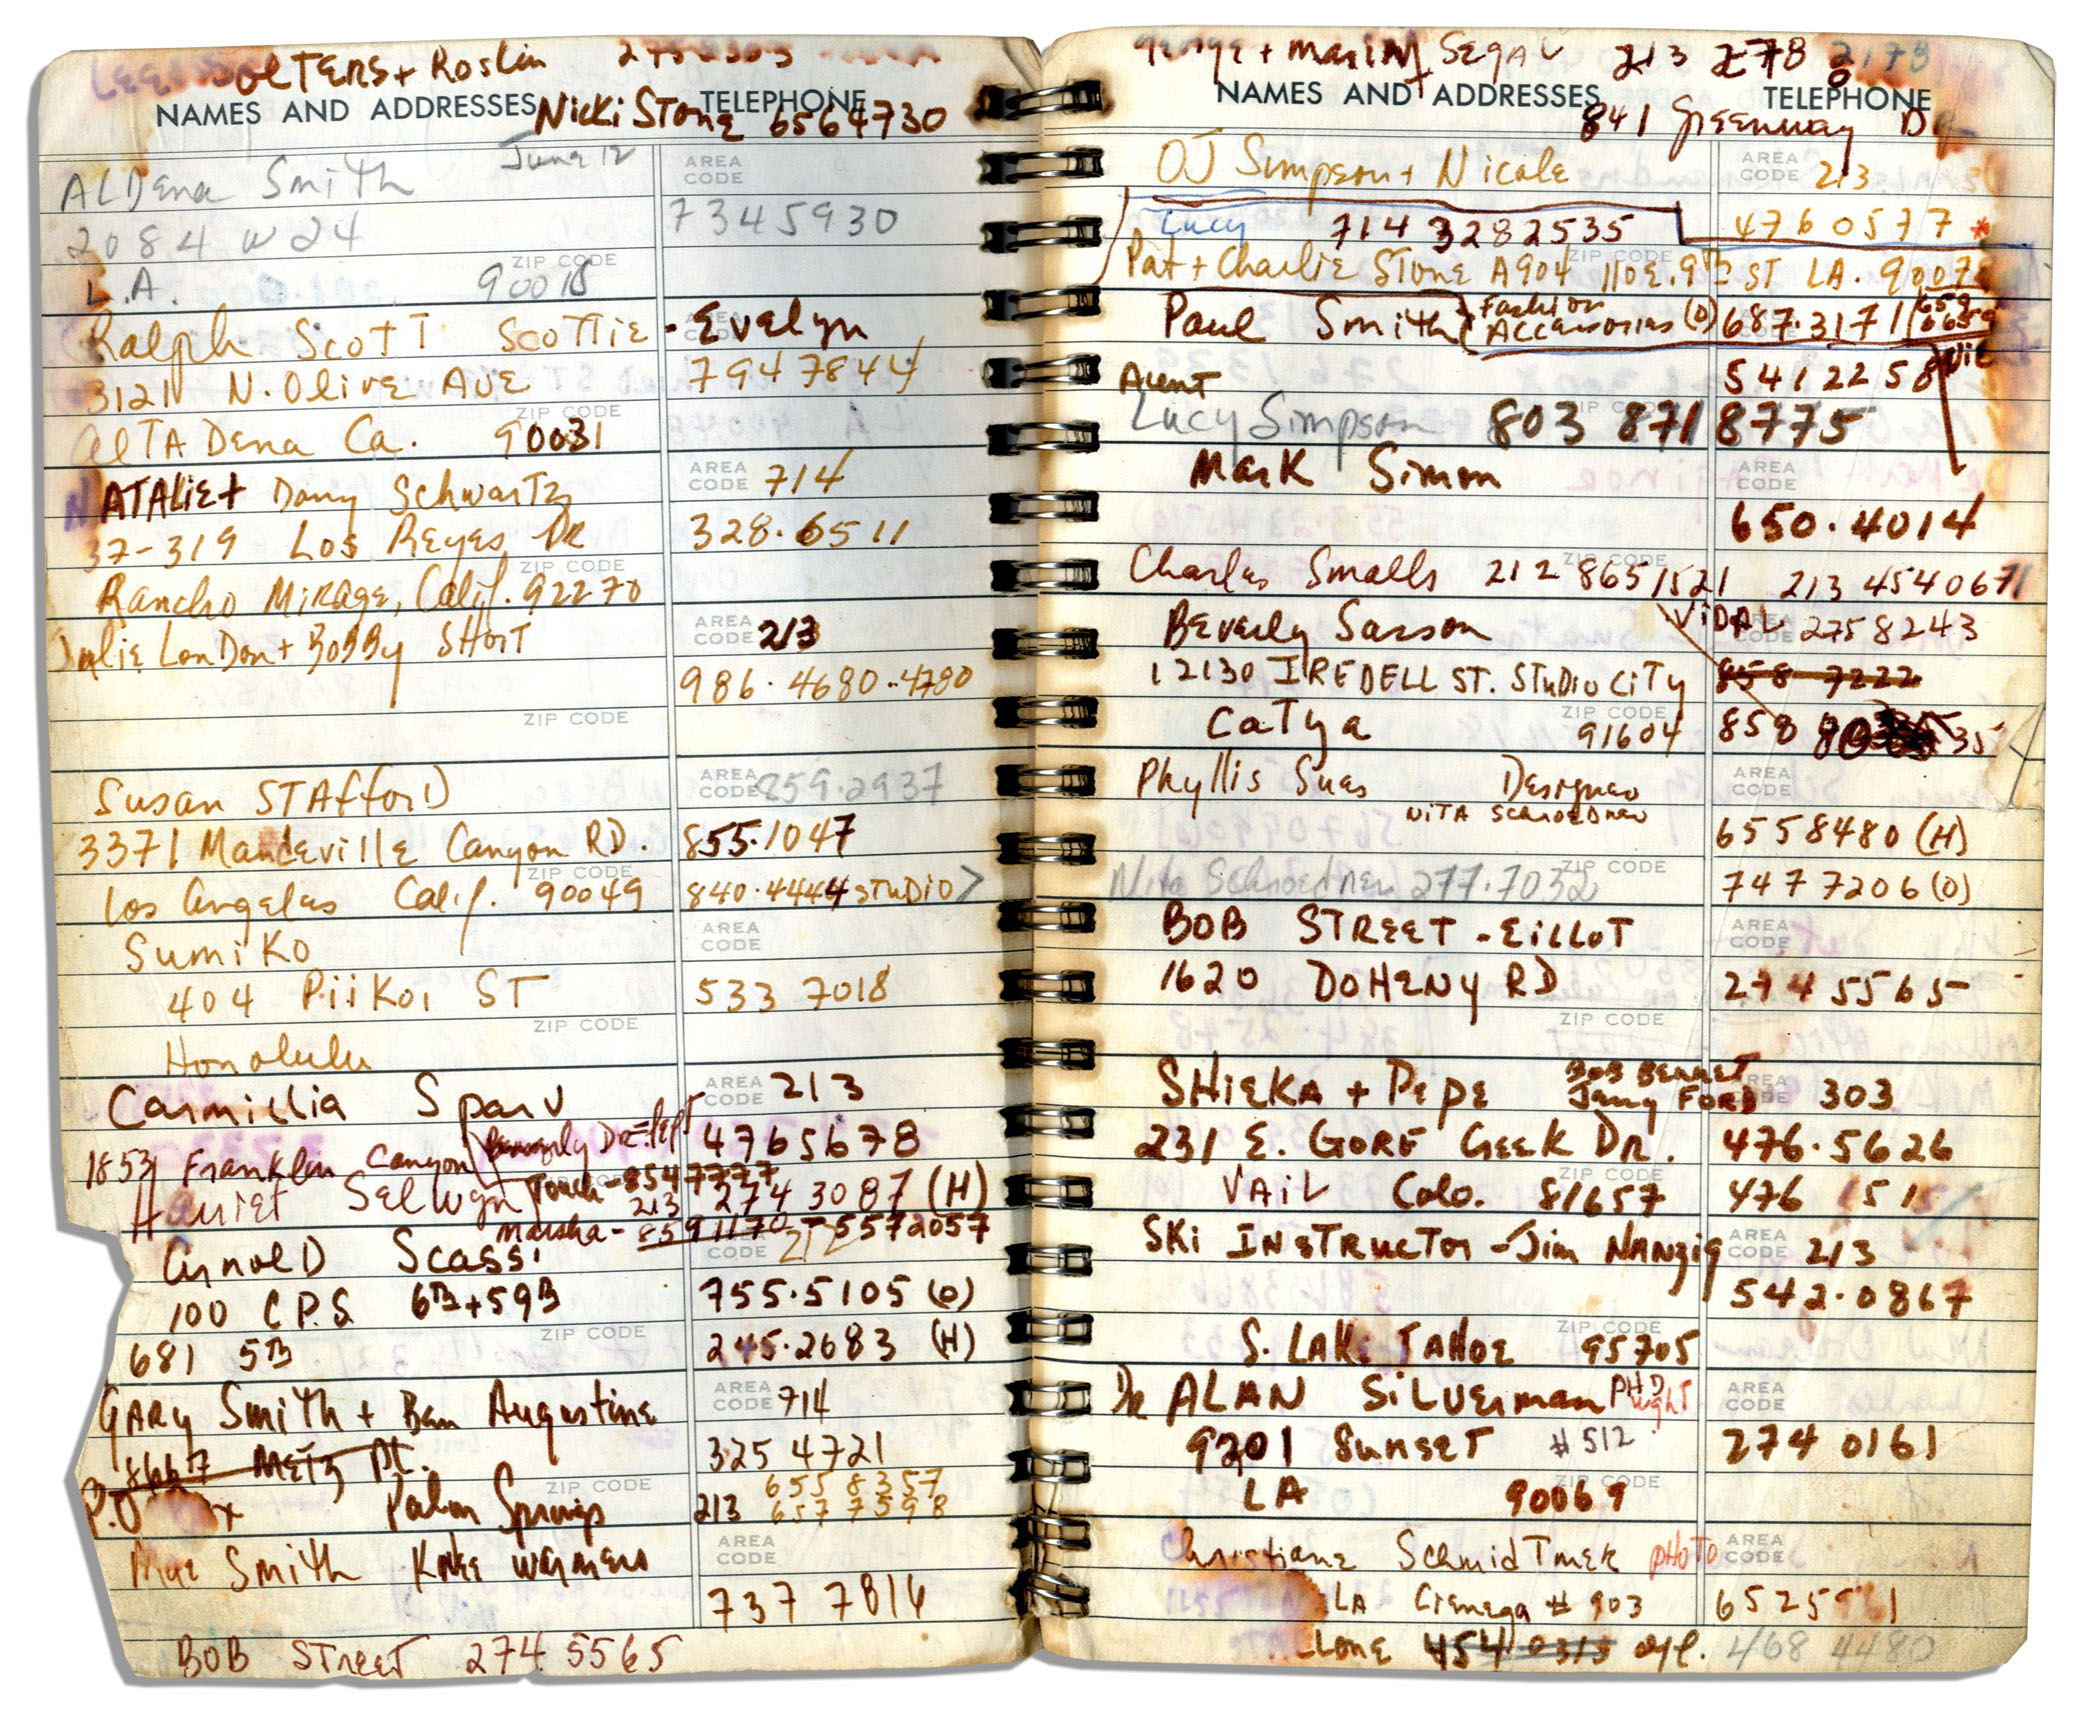 OLTERS + Roslin
NAMES AND ADDRESSES TELEPHONE
Nicki STONE 6564730
June 12
AREA CODE
ALDENA Smith
2084 W 24 7345930
ZIP CODE
L.A. 90018
Ralph Scott Scottie - Evelyn
3121 N. Olive AVE 7947844
ZIP CODE
ALTADENA Ca. 90031
NATALIE + Dany Schwartz AREA CODE 714
37-319 Los Reyes DR 328.6511
ZIP CODE
Rancho Mirage, Calif. 92270
Julie LonDon + BOBBy SHORT AREA CODE 213
986.4680..4780
ZIP CODE
Susan STAfforD AREA CODE 859.2937
3371 Mandeville Canyon RD. 855.1047
ZIP CODE
Los Angeles Calif. 90049 840.4444 STUDIO >
Sumiko AREA CODE
404 Piikoi ST 533 7018
ZIP CODE
Honolulu
Carmillia Sparv AREA CODE 213
1853 Franklin Canyon 4765678
Touch - 8547777
Harriet Selwyn 213 274 3087 (H)
Marsha - 8591170 - 5572057
Arnold Scassi AREA CODE 212
100 C.P.S. 6TH + 59TH 755.5105 (O)
ZIP CODE
681 5TH 245.2683 (H)
GARY Smith + Ben Augustine AREA CODE 714
8667 Metz Pl. 325 4721
ZIP CODE 655 8357
P.O. Palm Springs 213 657 7598
Mae Smith Knee warmers AREA CODE
737 7814
BOB STREET 274 5565
George + Marion Segal 213 278
NAMES AND ADDRESSES TELEPHONE
841 Greenway DR
OJ Simpson + Nicole AREA CODE 213
Lucy 714 3282535 476 0577 *
ZIP CODE
Pat + Charlie Stone A904 110 E. 9TH ST LA. 9007
Paul Smith Fashion Accessories (O) 687.3171
Aunt 541 2258
Lucy Simpson 803 871 8775
Mark Simon AREA CODE
650.4014
ZIP CODE
Charles Smalls 212 8651521 213 4540671
Beverly Sasson VIDAL AREA CODE 2758243
12130 IREDELL ST. STUDIO CITY 858 7222
ZIP CODE
CATYA 91604 858
Phyllis Sues Designer AREA CODE
NITA SCHROEDNER 6558480 (H)
ZIP CODE
Nita Schroedner 277.7032 747 7206 (O)
BOB STREET - EILLOT AREA CODE
1620 DOHENY RD 274 5565
ZIP CODE
SHIEKA + PEPE BOB BENNET Jerry FORD AREA CODE 303
231 E. GORE GREEK DR. 476.5626
ZIP CODE
VAIL Colo. 81657 476 1515
SKI INSTRUCTOR - Jim NANZIG AREA CODE 213
542.0867
ZIP CODE
S. LAKE TAHOE 95705
DR ALAN SILVERMAN PHD AREA CODE
9201 SUNSET #512 274 0161
ZIP CODE
LA 90069
Christiane SchmidTmer PHOTO AREA CODE
LA Cienega # 903
454 0313 468 4480